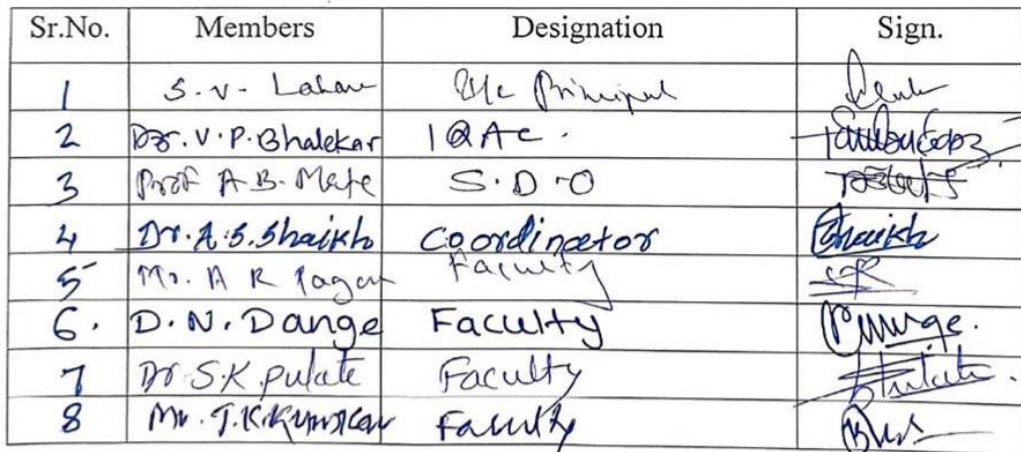 Sr.No. Members Designation Sign.
1 S.V. Lahare I/c Principal
2 Dr. V.P. Bhalekar IQAC.
3 Prof A.B. Mate S.D.O
4 Dr. A.S. Shaikh Coordinator Shaikh
5 Mr. A R Faculty
6. D.N. Dange Faculty
7 Dr S.K. Pulate Faculty
8 Mr. T.K. Faculty